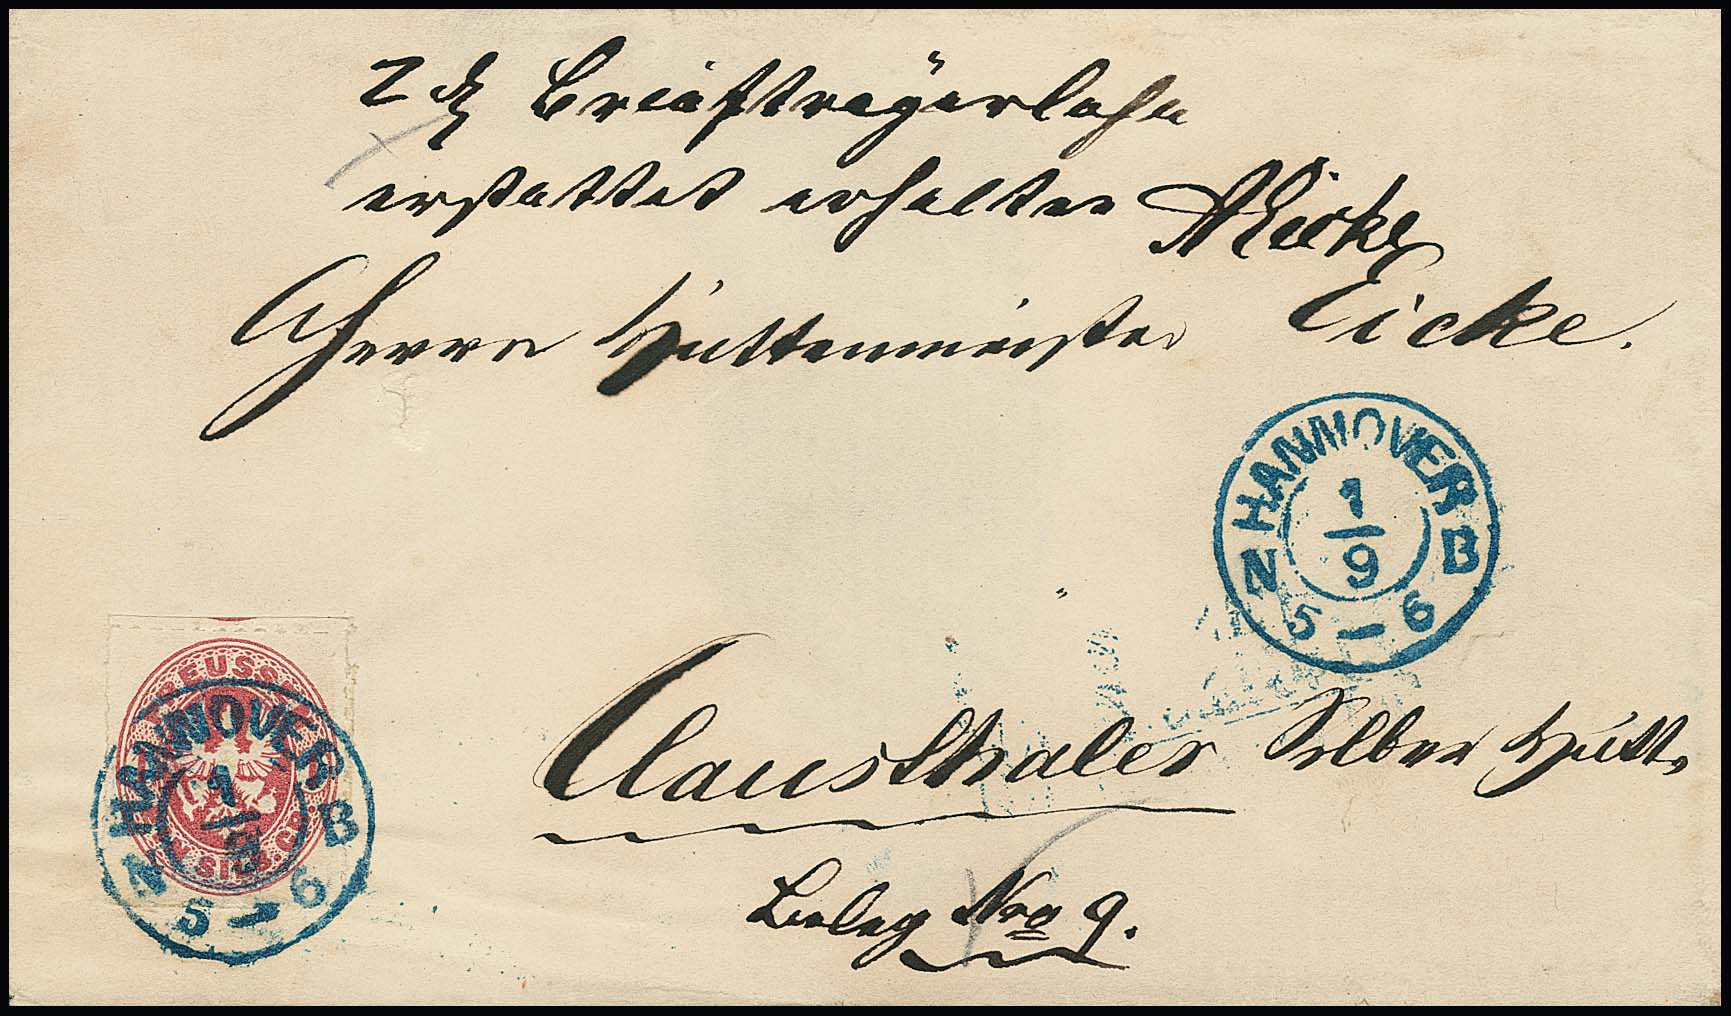 2 ₰ Briefträgerlohn
erstattet erhalten
Herrn Hüttenmeister Eicke.
HANNOVER
1
9
N B
5 – 6
PREUSSEN
HANNOVER
1
9
N B
5 – 6
Clausthaler Silber Hütte
Beleg Nro 9.